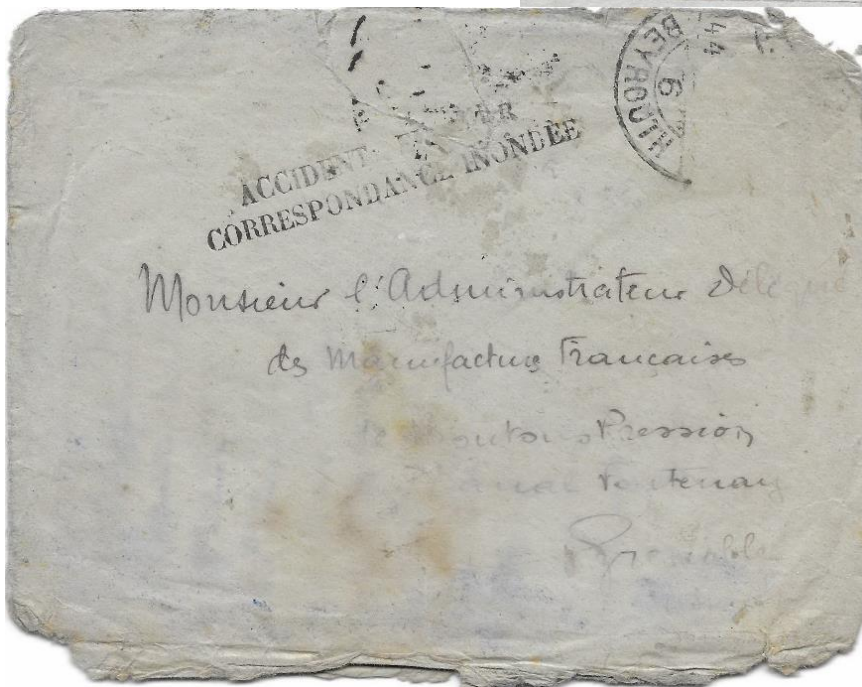 44
BEYROUTH
6
ACCIDENT
CORRESPONDANCE INONDÉE
Monsieur l'Administrateur Délégué
des Manufactures Françaises
Boutons Pression
Fontenay
Grenoble